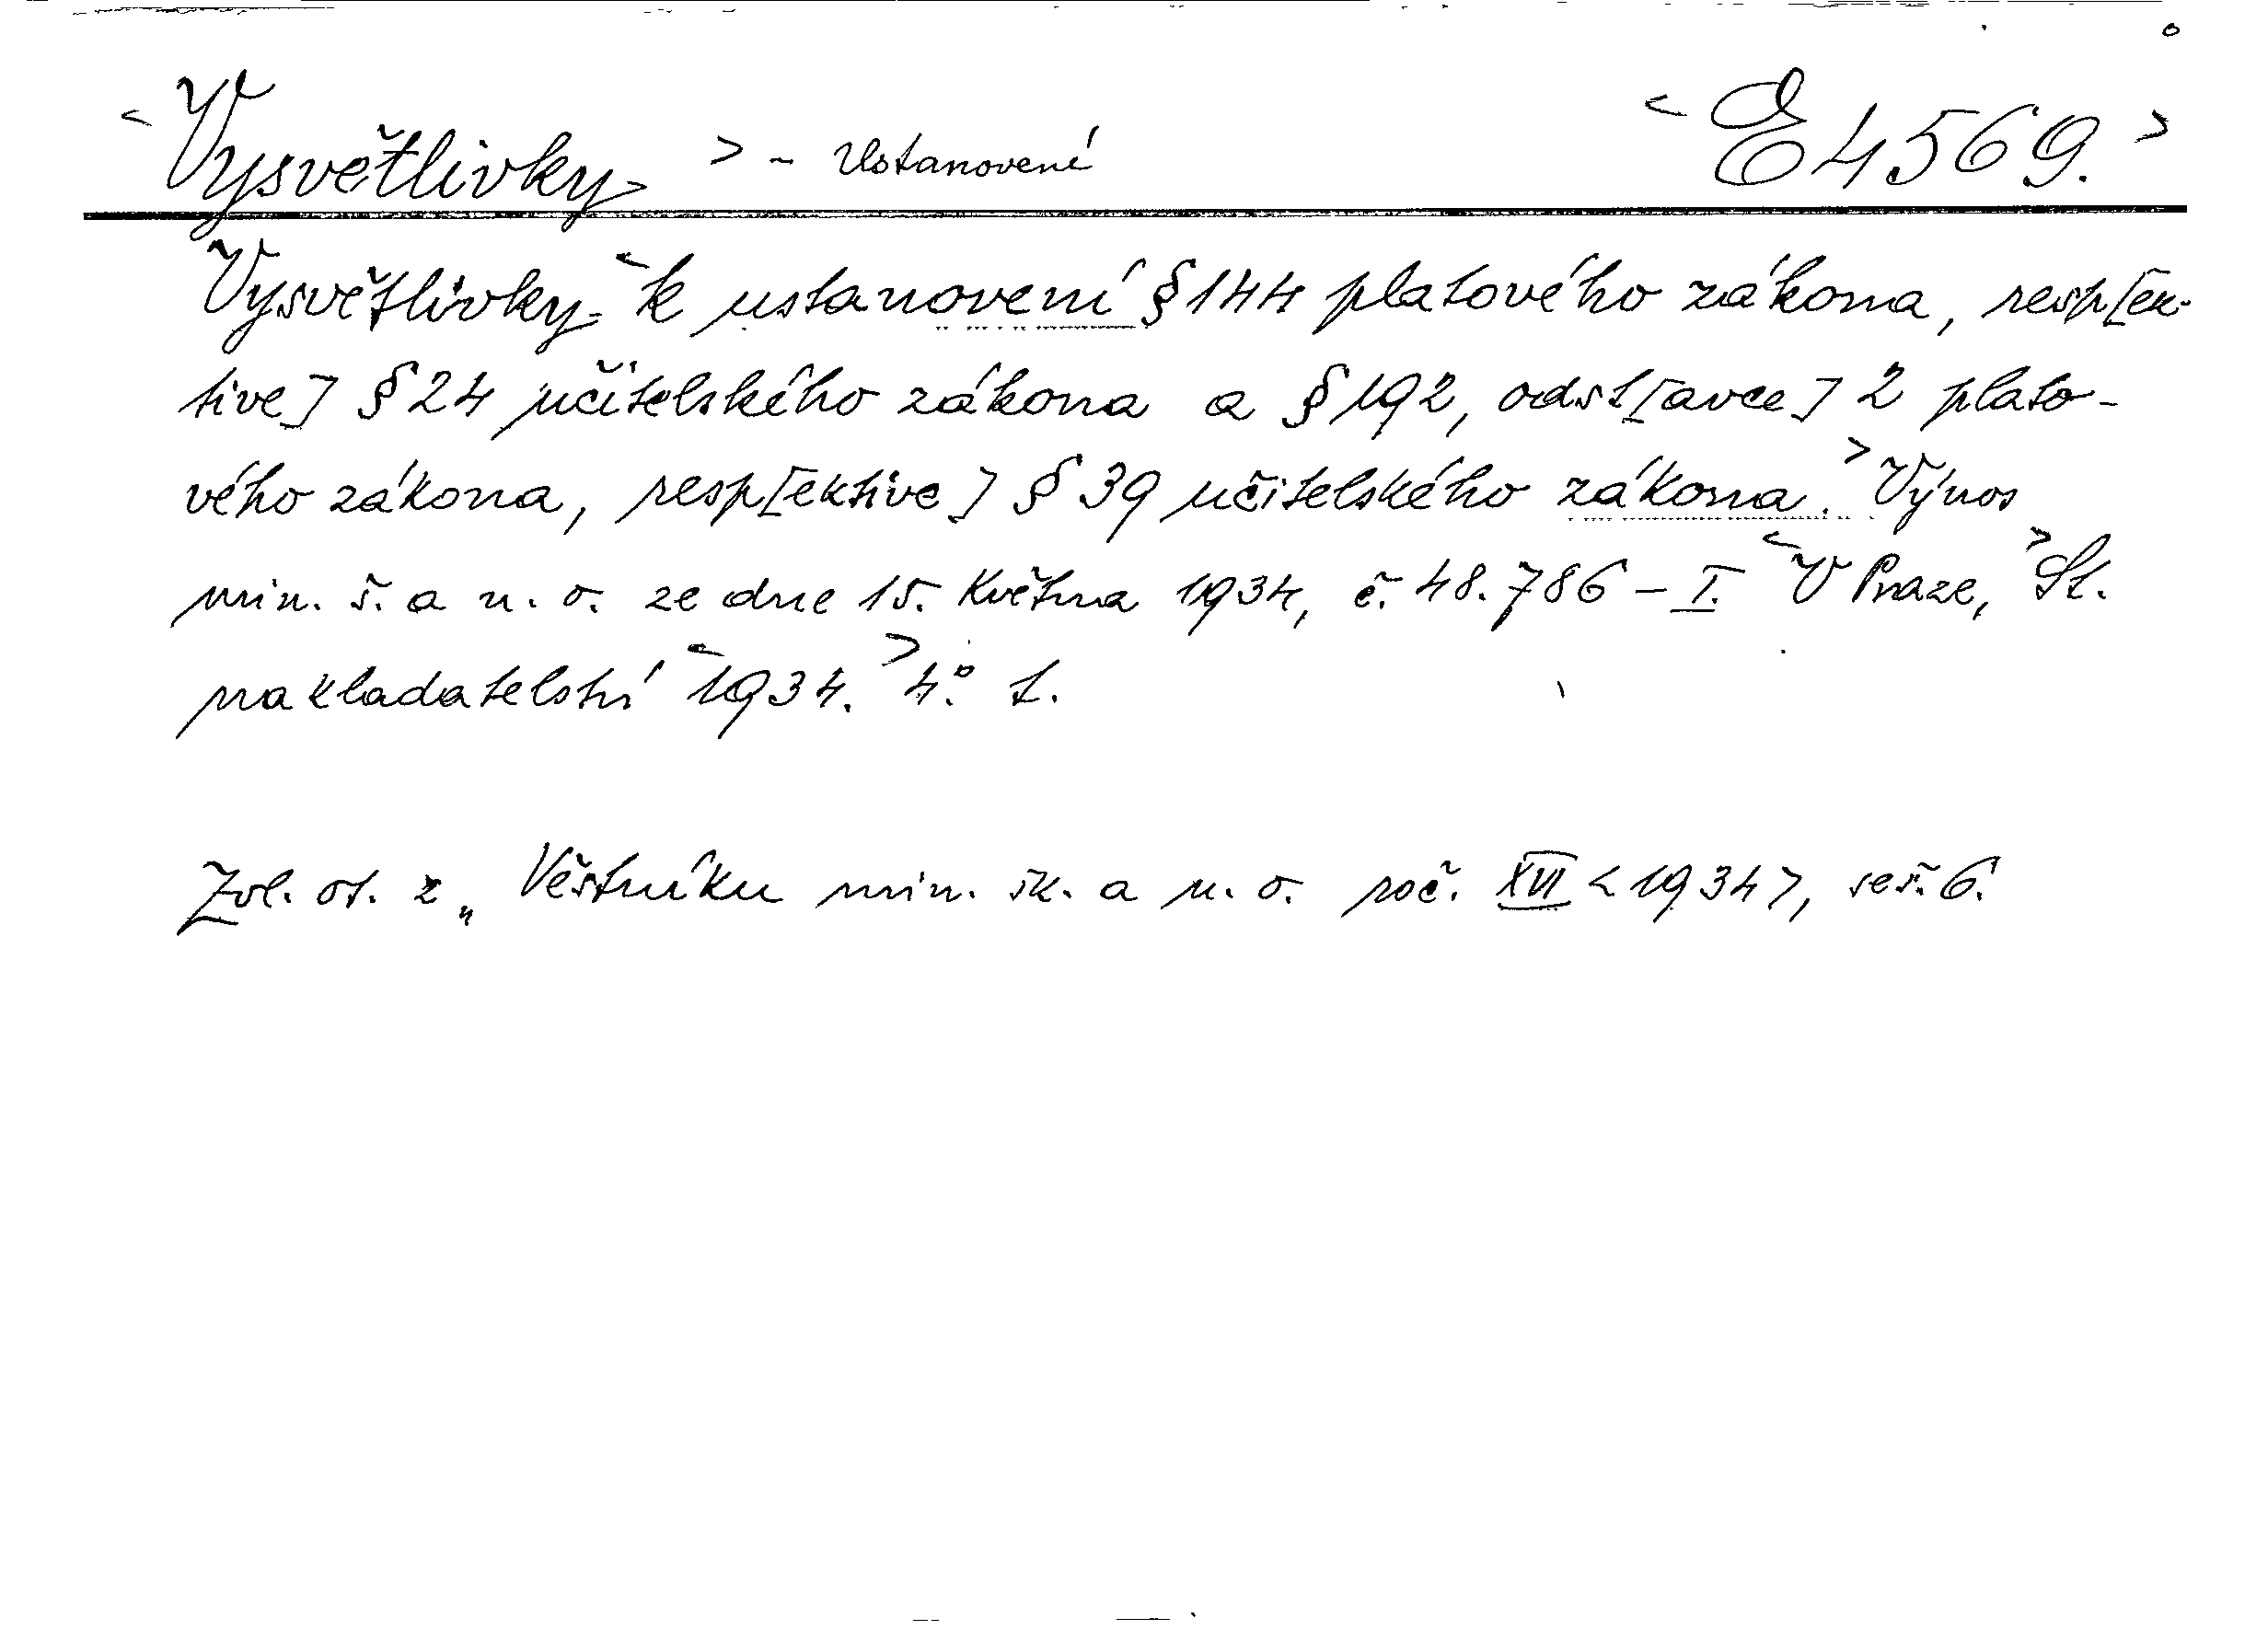 < Vysvětlivky > - Ustanovení < E 4569. >
Vysvětlivky < k ustanovení § 144 platového zákona, resp[ek-
tive] § 24 učitelského zákona a § 192, odst[avce] 2 plato-
vého zákona, resp[ektive] § 39 učitelského zákona. > Výnos
min. š. a n. o. ze dne 15. května 1934, č. 48.786 - I. < V Praze, > St.
nakladatelství < 1934. > 4°. 1.
Zvl. ot. z „Věstníku min. šk. a n. o. roč. XVI <1934>, seš. 6.